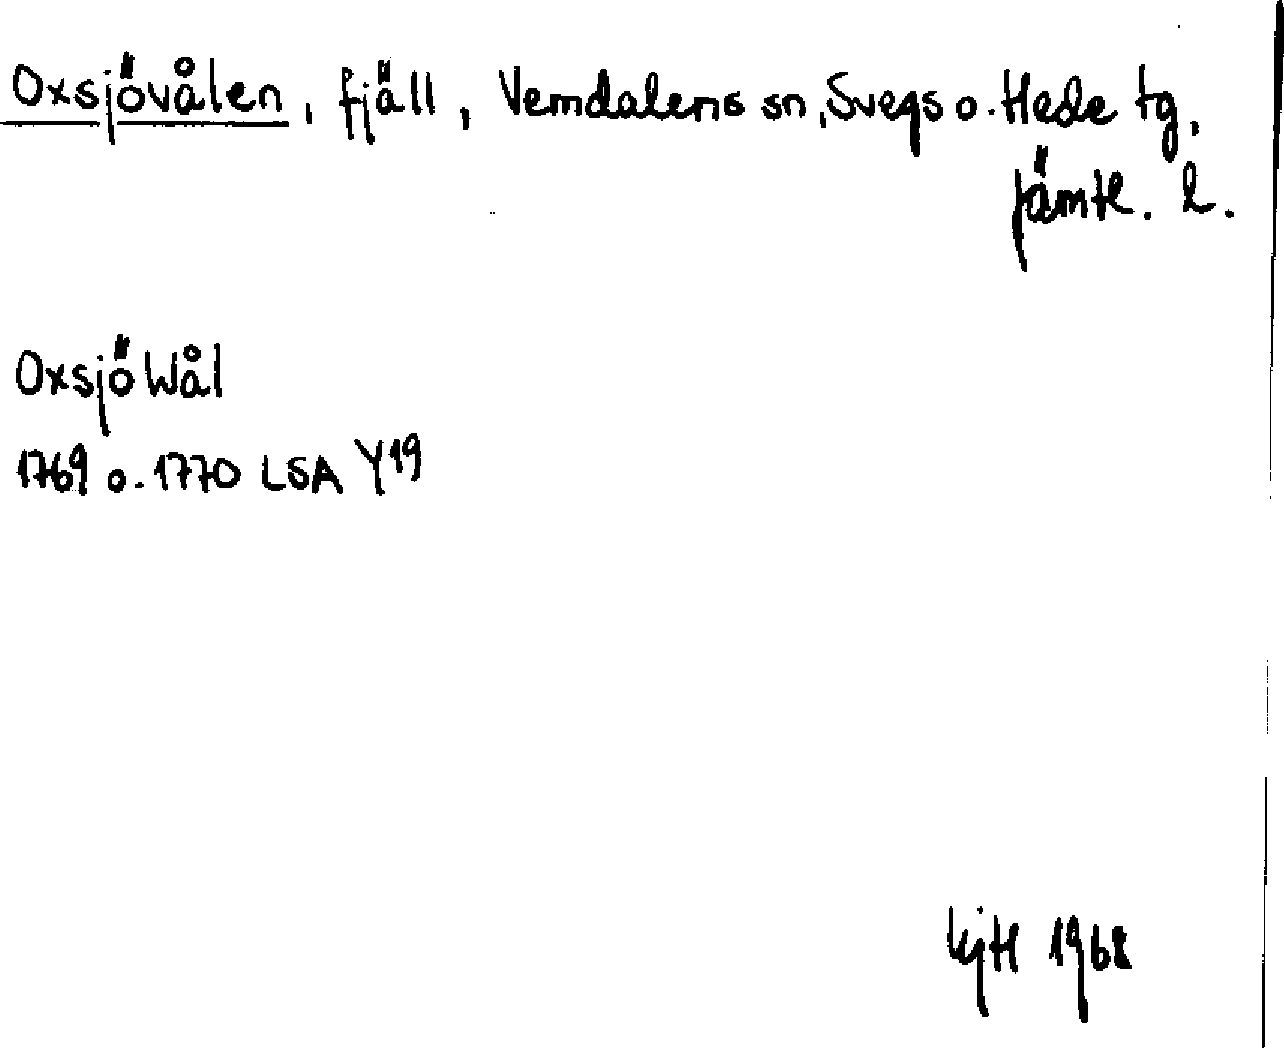 Oxsjövålen, fjäll, Vemdalens sn, Svegs o. Hede tg,
Jämtl. l.
OxsjöWål
1769 o. 1770 LSA Y19
1968